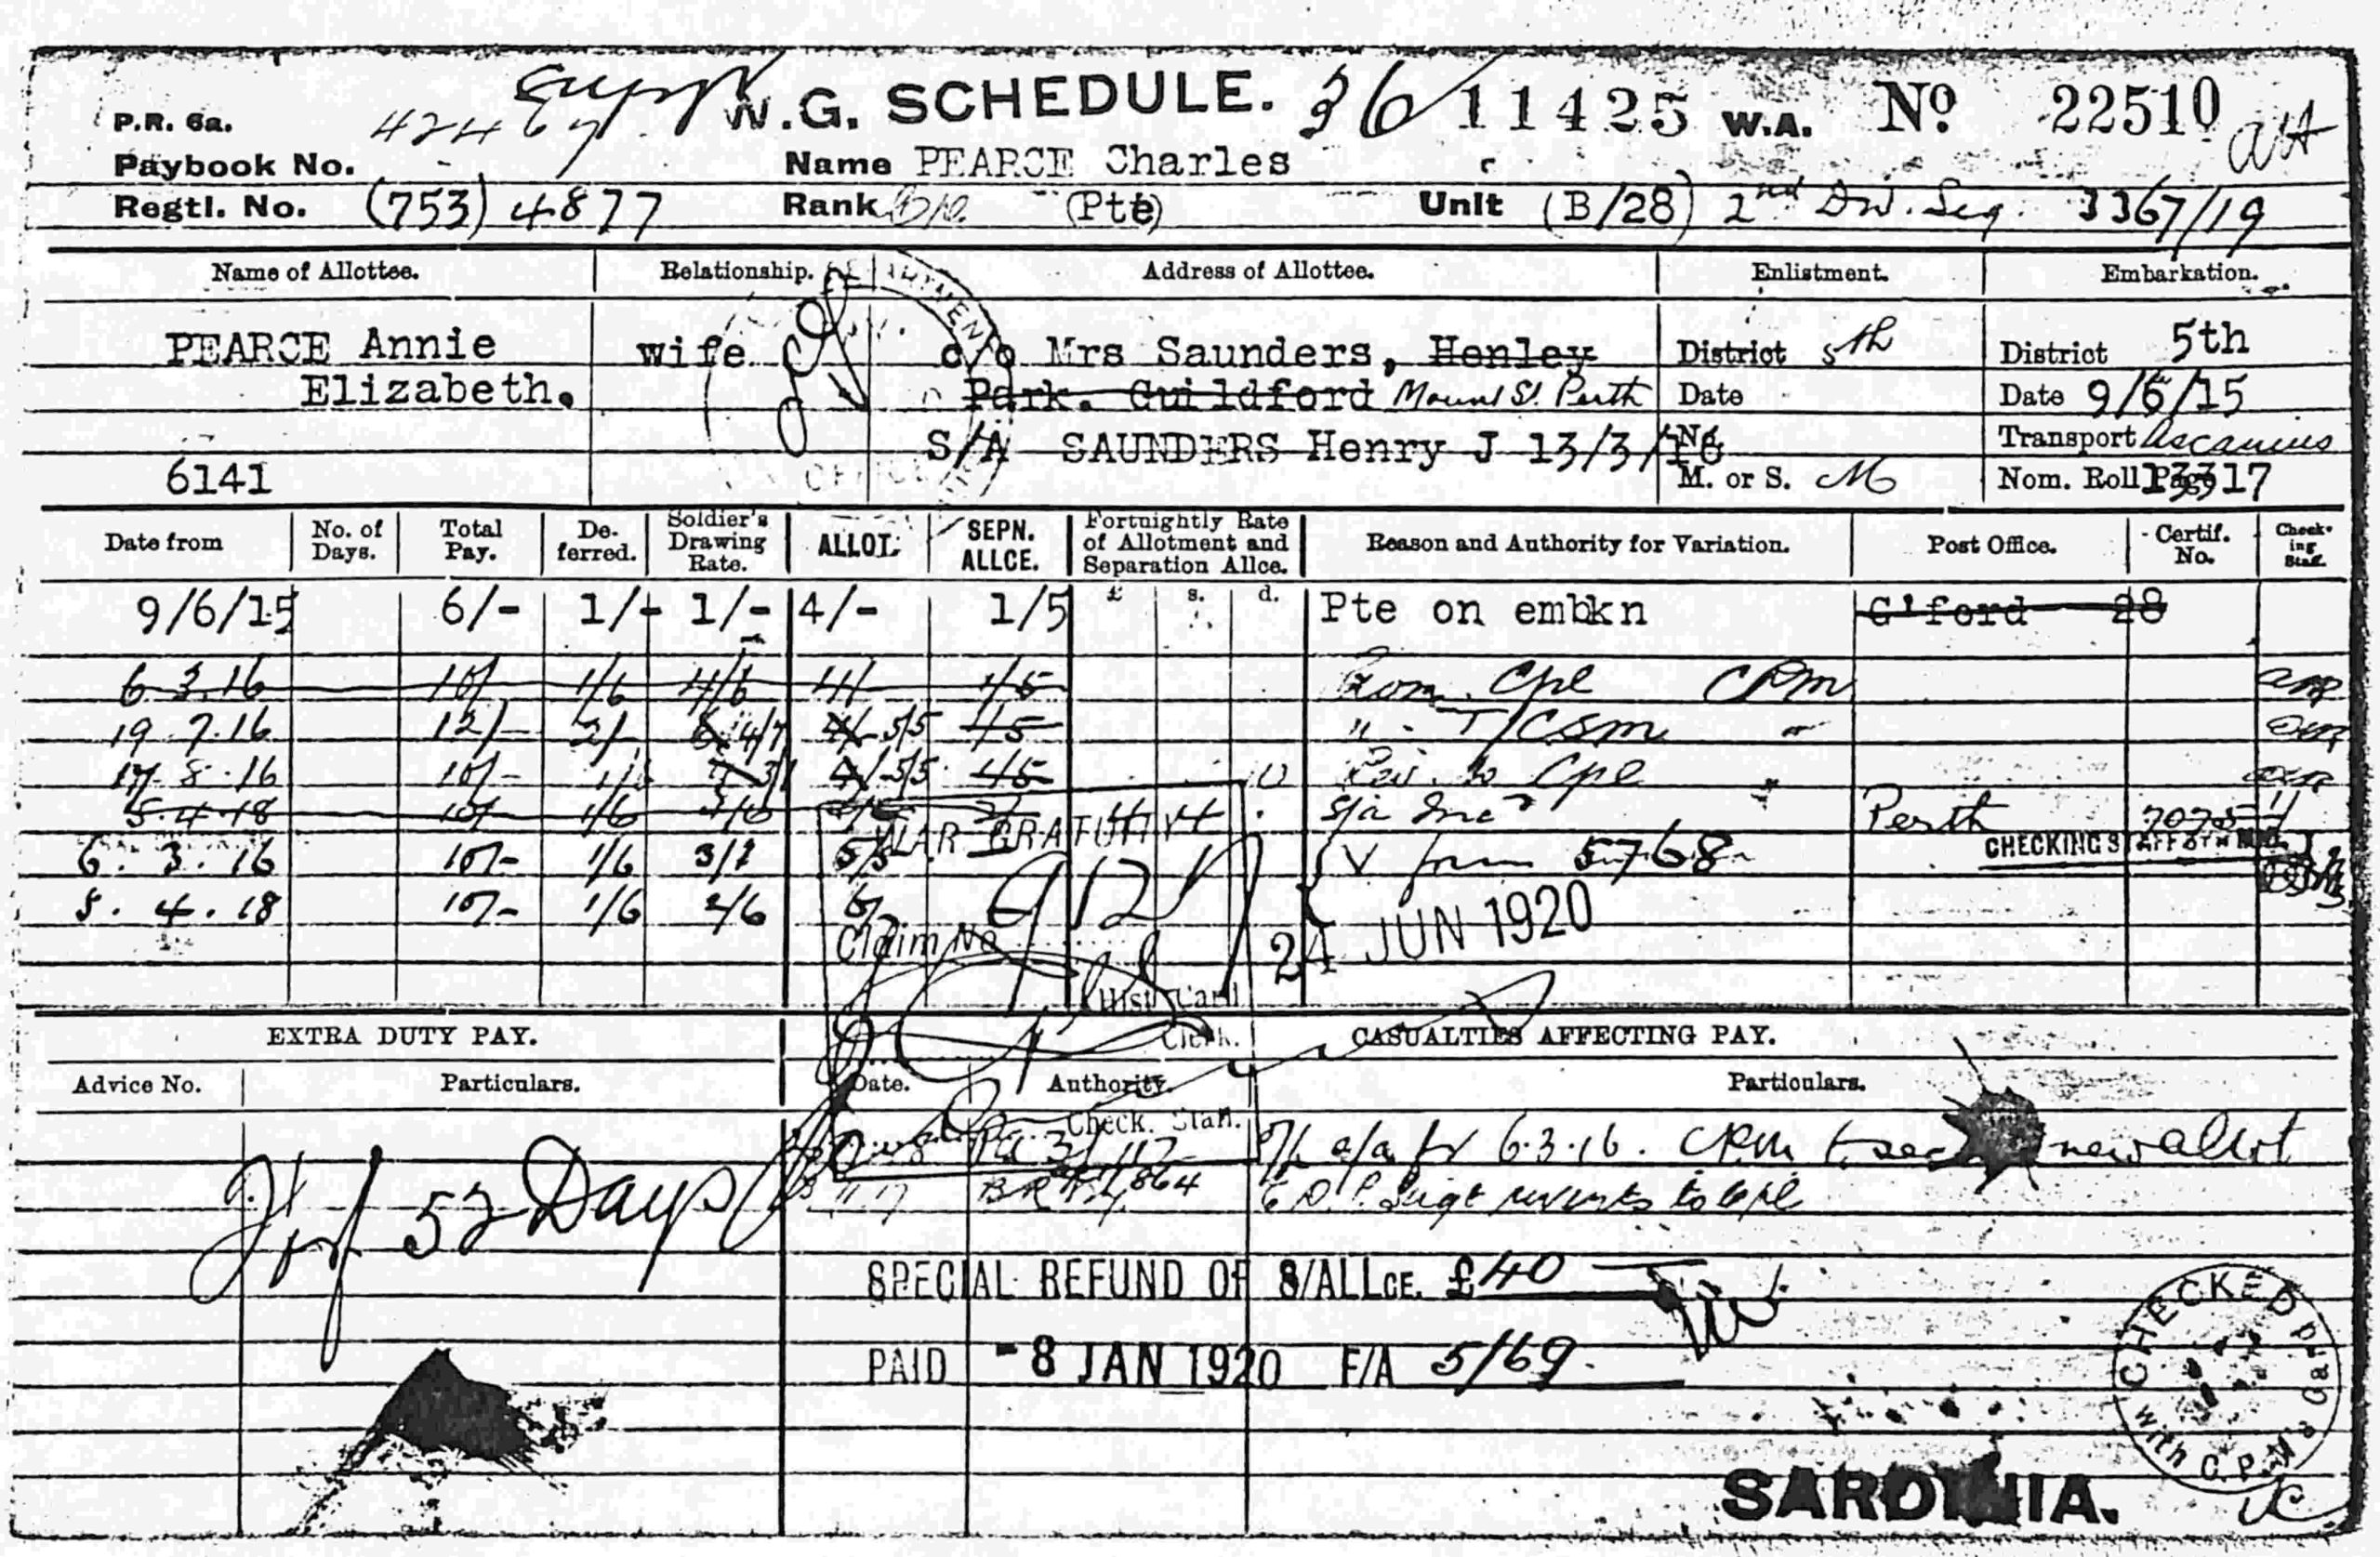 W.G. SCHEDULE. 36 11425 W.A. No 22510
P.R. 6a.
Paybook No. Name PEARCE Charles
Regtl. No. (753) 4877 Rank (Pte) Unit (B/28) 2nd Div. Sig. 3367/19
Name of Allottee. Relationship. Address of Allottee. Enlistment. Embarkation.
PEARCE Annie wife c/o Mrs Saunders, Henley District 5th District 5th
Elizabeth. Park. Guildford Mount St. Perth Date Date 9/6/15
S/A SAUNDERS Henry J 13/3/16 No. Transport Ascanius
6141 M. or S. M Nom. Roll Page 17
Date from No. of Days. Total Pay. De-ferred. Soldier's Drawing Rate. ALLOT. SEPN. ALLCE. Fortnightly Rate of Allotment and Separation Allce. Reason and Authority for Variation. Post Office. Certif. No. Check-ing Staff.
£ s. d.
9/6/15 6/- 1/- 1/- 4/- 1/5 Pte on embkn G'ford 28
6 3.16 10/- 1/6 4/6 4/ 1/5 Prom. Cpl CPM
19 7.16 12/- 2/ 4/7 4/ 5/5 1/5 " T/CSM "
17 8.16 10/- 1/6 3/1 4/ 5/5 1/5 Rev. to Cpl "
5.4.18 10/- 1/6 S/a Incd Perth
WAR GRATUITY
6.3.16 10/- 1/6 3/1 5/5 V from 5768 CHECKING STAFF 5TH M.D.
5.4.18 10/- 1/6 2/6 6/
Claim No 24 JUN 1920
Hist. Card
Clerk.
EXTRA DUTY PAY. CASUALTIES AFFECTING PAY.
Advice No. Particulars. Date. Authority. Particulars.
Check. Staff.
a/a fr 6.3.16. CPM new allot
52 Days 11.17 864 E.D.P. Sergt reverts to Cpl
SPECIAL REFUND OF S/ALLCE. £40
PAID -8 JAN 1920 F/A 5/69
CHECKED with C.P.M's Card
SARDINIA.